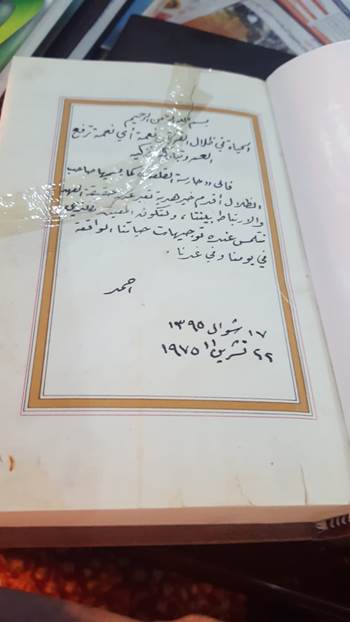 بسم الله الرحمن الرحيم
الحياة في ظلال القرآن نعمة أي نعمة ترفع
العمر وتباركه وتزكيه
فالى حارسة القلعة كما يسميها صاحب
الظلال أقدم خير هدية تعبر عن حقيقة الفهم
والارتباط بيننا، ولتكون المعين الذي
نتلمس عنده توجيهات حياتنا الواقعة
في يومنا وفي غدنا.
احمد
١٧ شوال ١٣٩٥
٢٢ تشرين ١٩٧٥